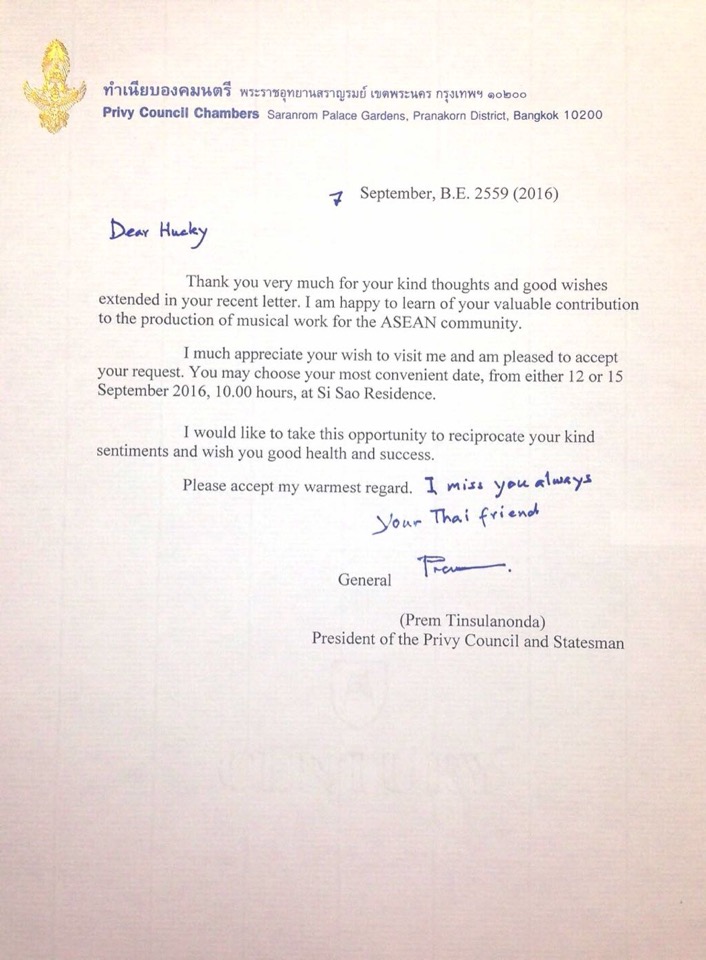 ทำเนียบองคมนตรี พระราชอุทยานสราญรมย์ เขตพระนคร กรุงเทพฯ ๑๐๒๐๐
Privy Council Chambers Saranrom Palace Gardens, Pranakorn District, Bangkok 10200
7 September, B.E. 2559 (2016)
Dear Hucky
Thank you very much for your kind thoughts and good wishes
extended in your recent letter. I am happy to learn of your valuable contribution
to the production of musical work for the ASEAN community.
I much appreciate your wish to visit me and am pleased to accept
your request. You may choose your most convenient date, from either 12 or 15
September 2016, 10.00 hours, at Si Sao Residence.
I would like to take this opportunity to reciprocate your kind
sentiments and wish you good health and success.
Please accept my warmest regard. I miss you always
your Thai friend
General Prem.
(Prem Tinsulanonda)
President of the Privy Council and Statesman